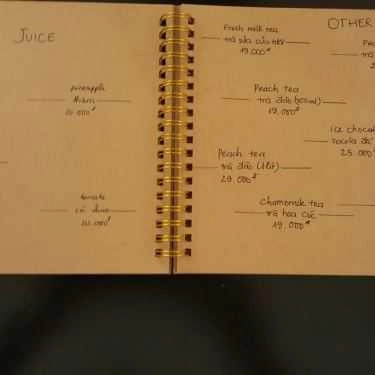 JUICE
pineapple
thơm
20.000đ
tomato
cà chua
20.000đ
OTHER
Fresh milk tea
trà sữa
19.000đ
Peach tea
trà đào (500ml)
19.000đ
Peach tea
trà đào (1 lít)
29.000đ
Chamomile tea
trà hoa cúc
19.000đ
Ice chocola
25.000